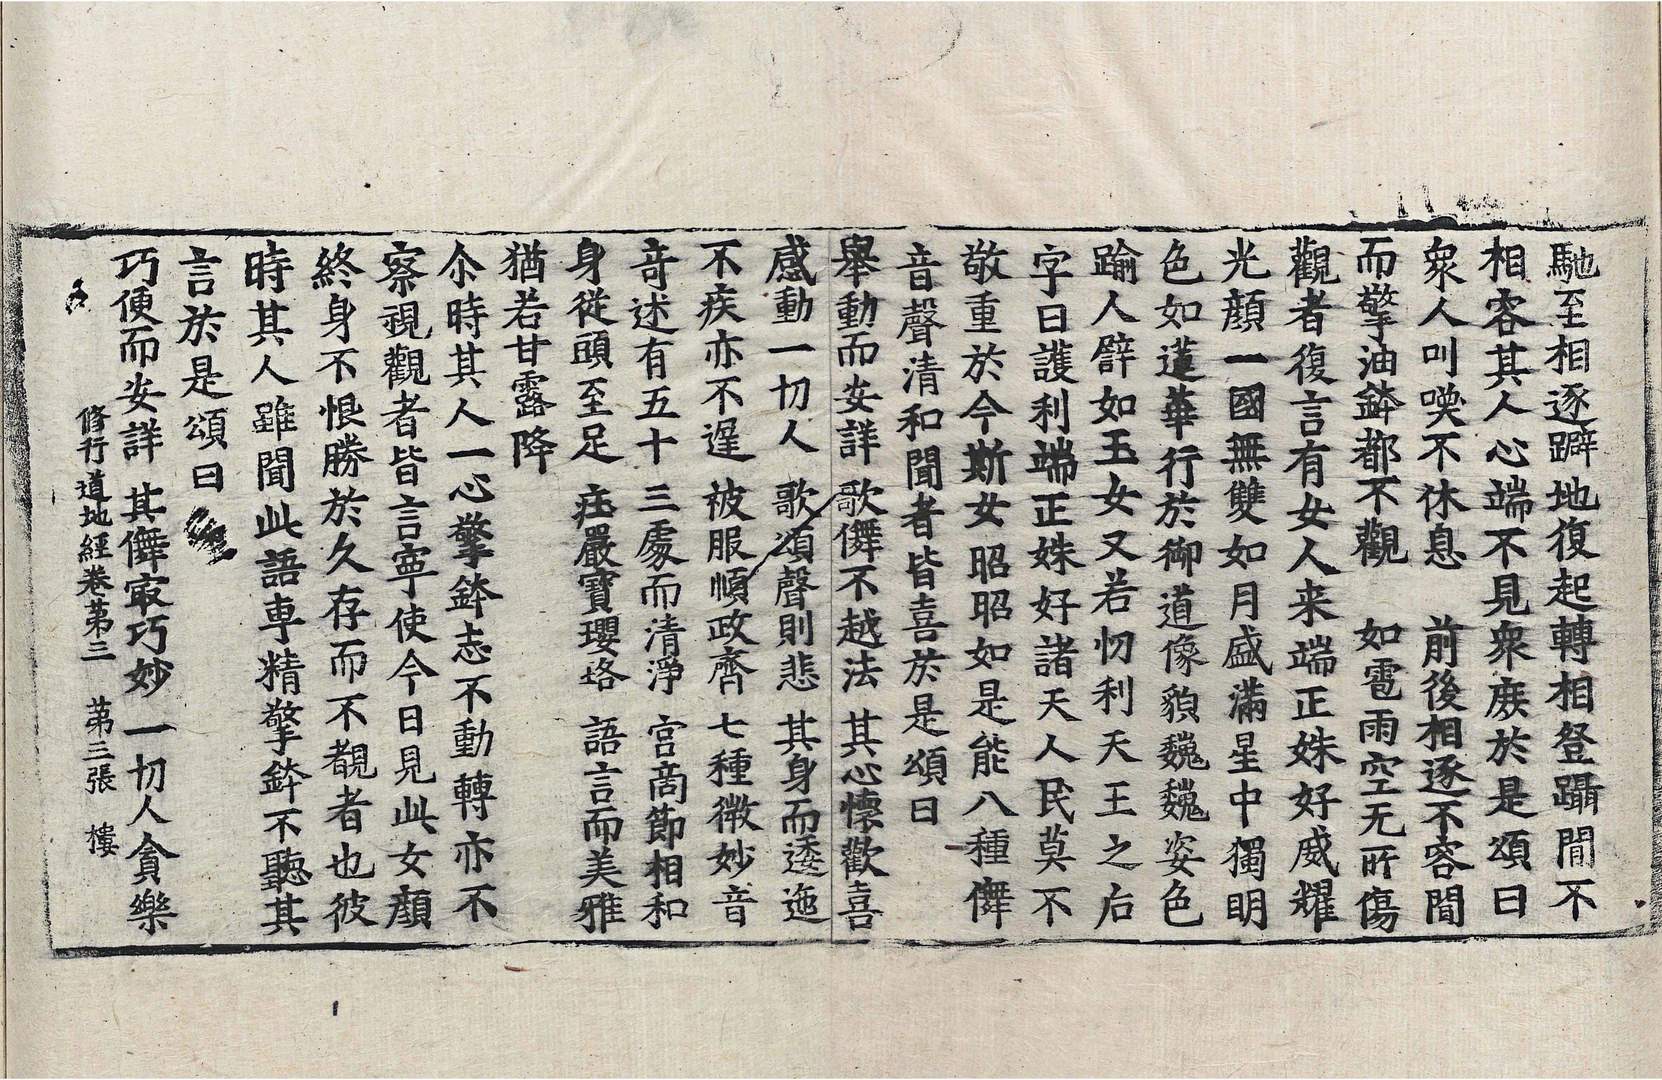 馳至相逐躃地復起轉相登躡間不
相容其人心端不見衆庻於是頌曰
衆人叫喚不休息　前後相逐不容間
而擎油鉢都不觀　如雹雨空无所傷
觀者復言有女人来端正姝好威耀
光顔一國無雙如月盛滿星中獨明
色如蓮華行於御道像貌巍巍姿色
踰人譬如玉女又若忉利天王之后
字曰護利端正姝好諸天人民莫不
敬重於今斯女昭昭如是能八種儛
音聲清和聞者皆喜於是頌曰
舉動而安詳　歌儛不越法　其心懷歡喜
感動一切人　歌頌聲則悲　其身而逶迤
不疾亦不遲　被服順政齊　七種微妙音
竒述有五十　三處而清淨　宮商節相和
身從頭至足　莊嚴寶瓔珞　語言而美雅
猶若甘露降
尒時其人一心擎鉢志不動轉亦不
察視觀者皆言寧使今日見此女顔
終身不恨勝於久存而不覩者也彼
時其人雖聞此語専精擎鉢不聽其
言於是頌曰
巧便而安詳　其儛㝡巧妙　一切人貪樂
修行道地經卷苐三　苐三張　樓